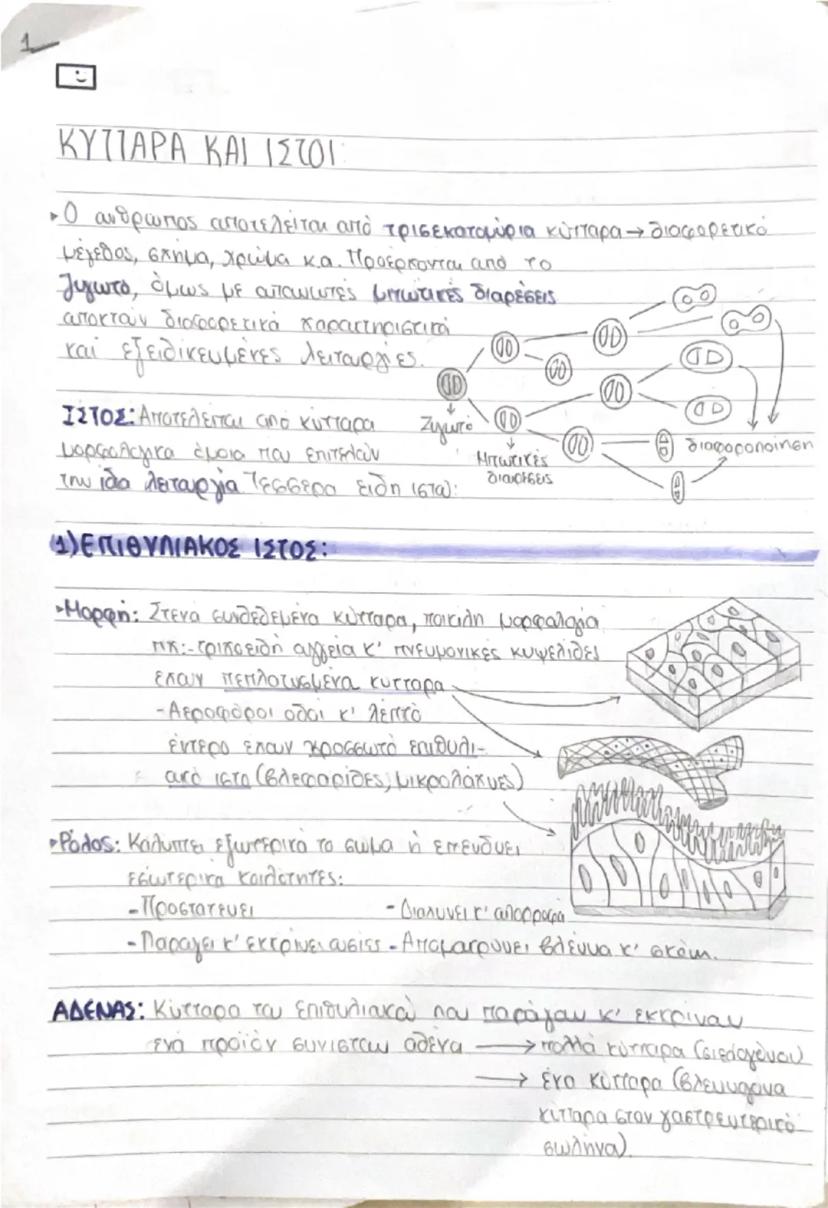 1
ΚΥΤΤΑΡΑ ΚΑΙ ΙΣΤΟΙ
Ο ανθρωπος αποτελείται από τρισεκατομύρια κύτταρα → διαφορετικό
μέγεθος, σχήμα, χρώμα κ.α. Προέρχονται από το
ζυγωτό, όμως με απανωτές μιτωτικές διαρέσεις
αποκτούν διαφορετικά χαρακτηριστικά
και εξειδικευμένες λειτουργίες.
Ζυγωτό
Μιτωτικές
διαιρέσεις
διαφοροποίηση
ΙΣΤΟΣ: Αποτελείται από κύτταρα
μορφολογικα όμοια που επιτελούν
την ίδα λειτουργία Τέσσερα ειδη ιστού:
1) ΕΠΙΘΥΛΙΑΚΟΣ ΙΣΤΟΣ:
Μορφή: Στενά συνδεδεμένα κύτταρα, ποικιλη μορφολογία
πχ:-τριχοειδή αγγεία κ' πνευμονικές κυψελίδες
έχουν πεπλατυσμένα κυτταρα
-Αεροφόροι οδοί κ' λεπτό
έντερο έχουν κροσσωτό επιθυλι-
ακό ιστο (βλεφαρίδες, μικρολάχνες)
Ρόλος: Καλυπτει εξωτερικά το σωμα ή επενδυει
εσωτερικά κοιλοτητες:
-Προστατευει - Διαλυνει κ' απορροφά
-Παραγει κ' εκκρίνει ουσίες - Απομακρυνει βλεννα κ' σκόνη.
ΑΔΕΝΑΣ: Κύτταρα του επιθυλιακού που παράγουν κ' εκκρίνουν
ενα προϊόν συνιστουν αδένα → πολλά κύτταρα (σιελογόνοι)
→ ένα κύτταρα (βλεννογονα
κύτταρα στον γαστρεντερικό
σωλήνα).